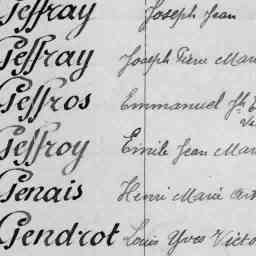 Geffray Joseph Jean
Geffray Joseph Pierre Marie
Geffros Emmanuel Jh
Geffroy Emile Jean Mar
Genais Henri Marie
Gendrot Louis Yves Victo